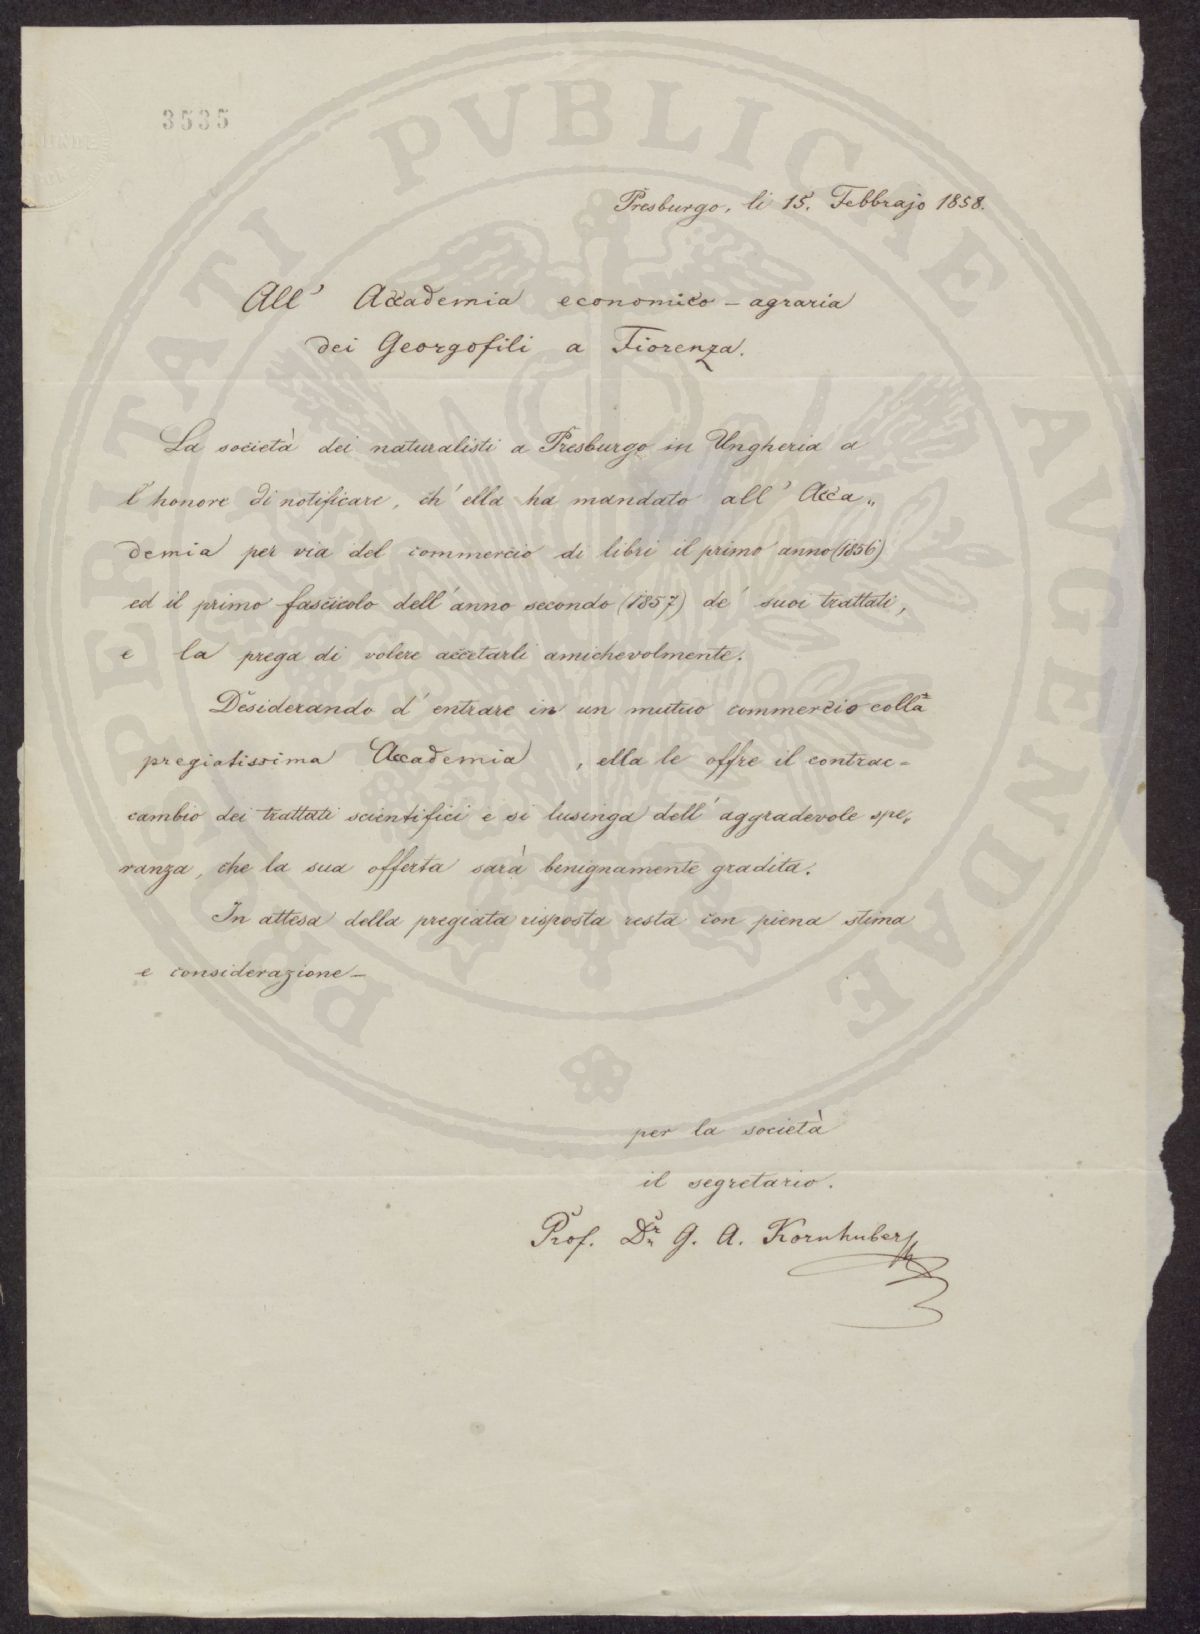 3535
PROSPERITATI PVBLICAE AVGENDAE
Presburgo, li 15. Febbrajo 1858.
All' Accademia economico - agraria
dei Georgofili a Fiorenza.
La società dei naturalisti a Presburgo in Ungheria a
l'honore di notificare, ch'ella ha mandato all' Acca„
demia per via del commercio di libri il primo anno (1856)
ed il primo fascicolo dell'anno secondo (1857) de' suoi trattati,
e la prega di volere accetarli amichevolmente.
Desiderando d'entrare in un mutuo commercio colla
pregiatissima Accademia, ella le offre il contrac=
cambio dei trattati scientifici e si lusinga dell'aggradevole spe„
ranza, che la sua offerta sarà benignamente gradita.
In attesa della pregiata risposta resta con piena stima
e considerazione —
per la società
il segretario.
Prof. Dr. G. A. Kornhuber